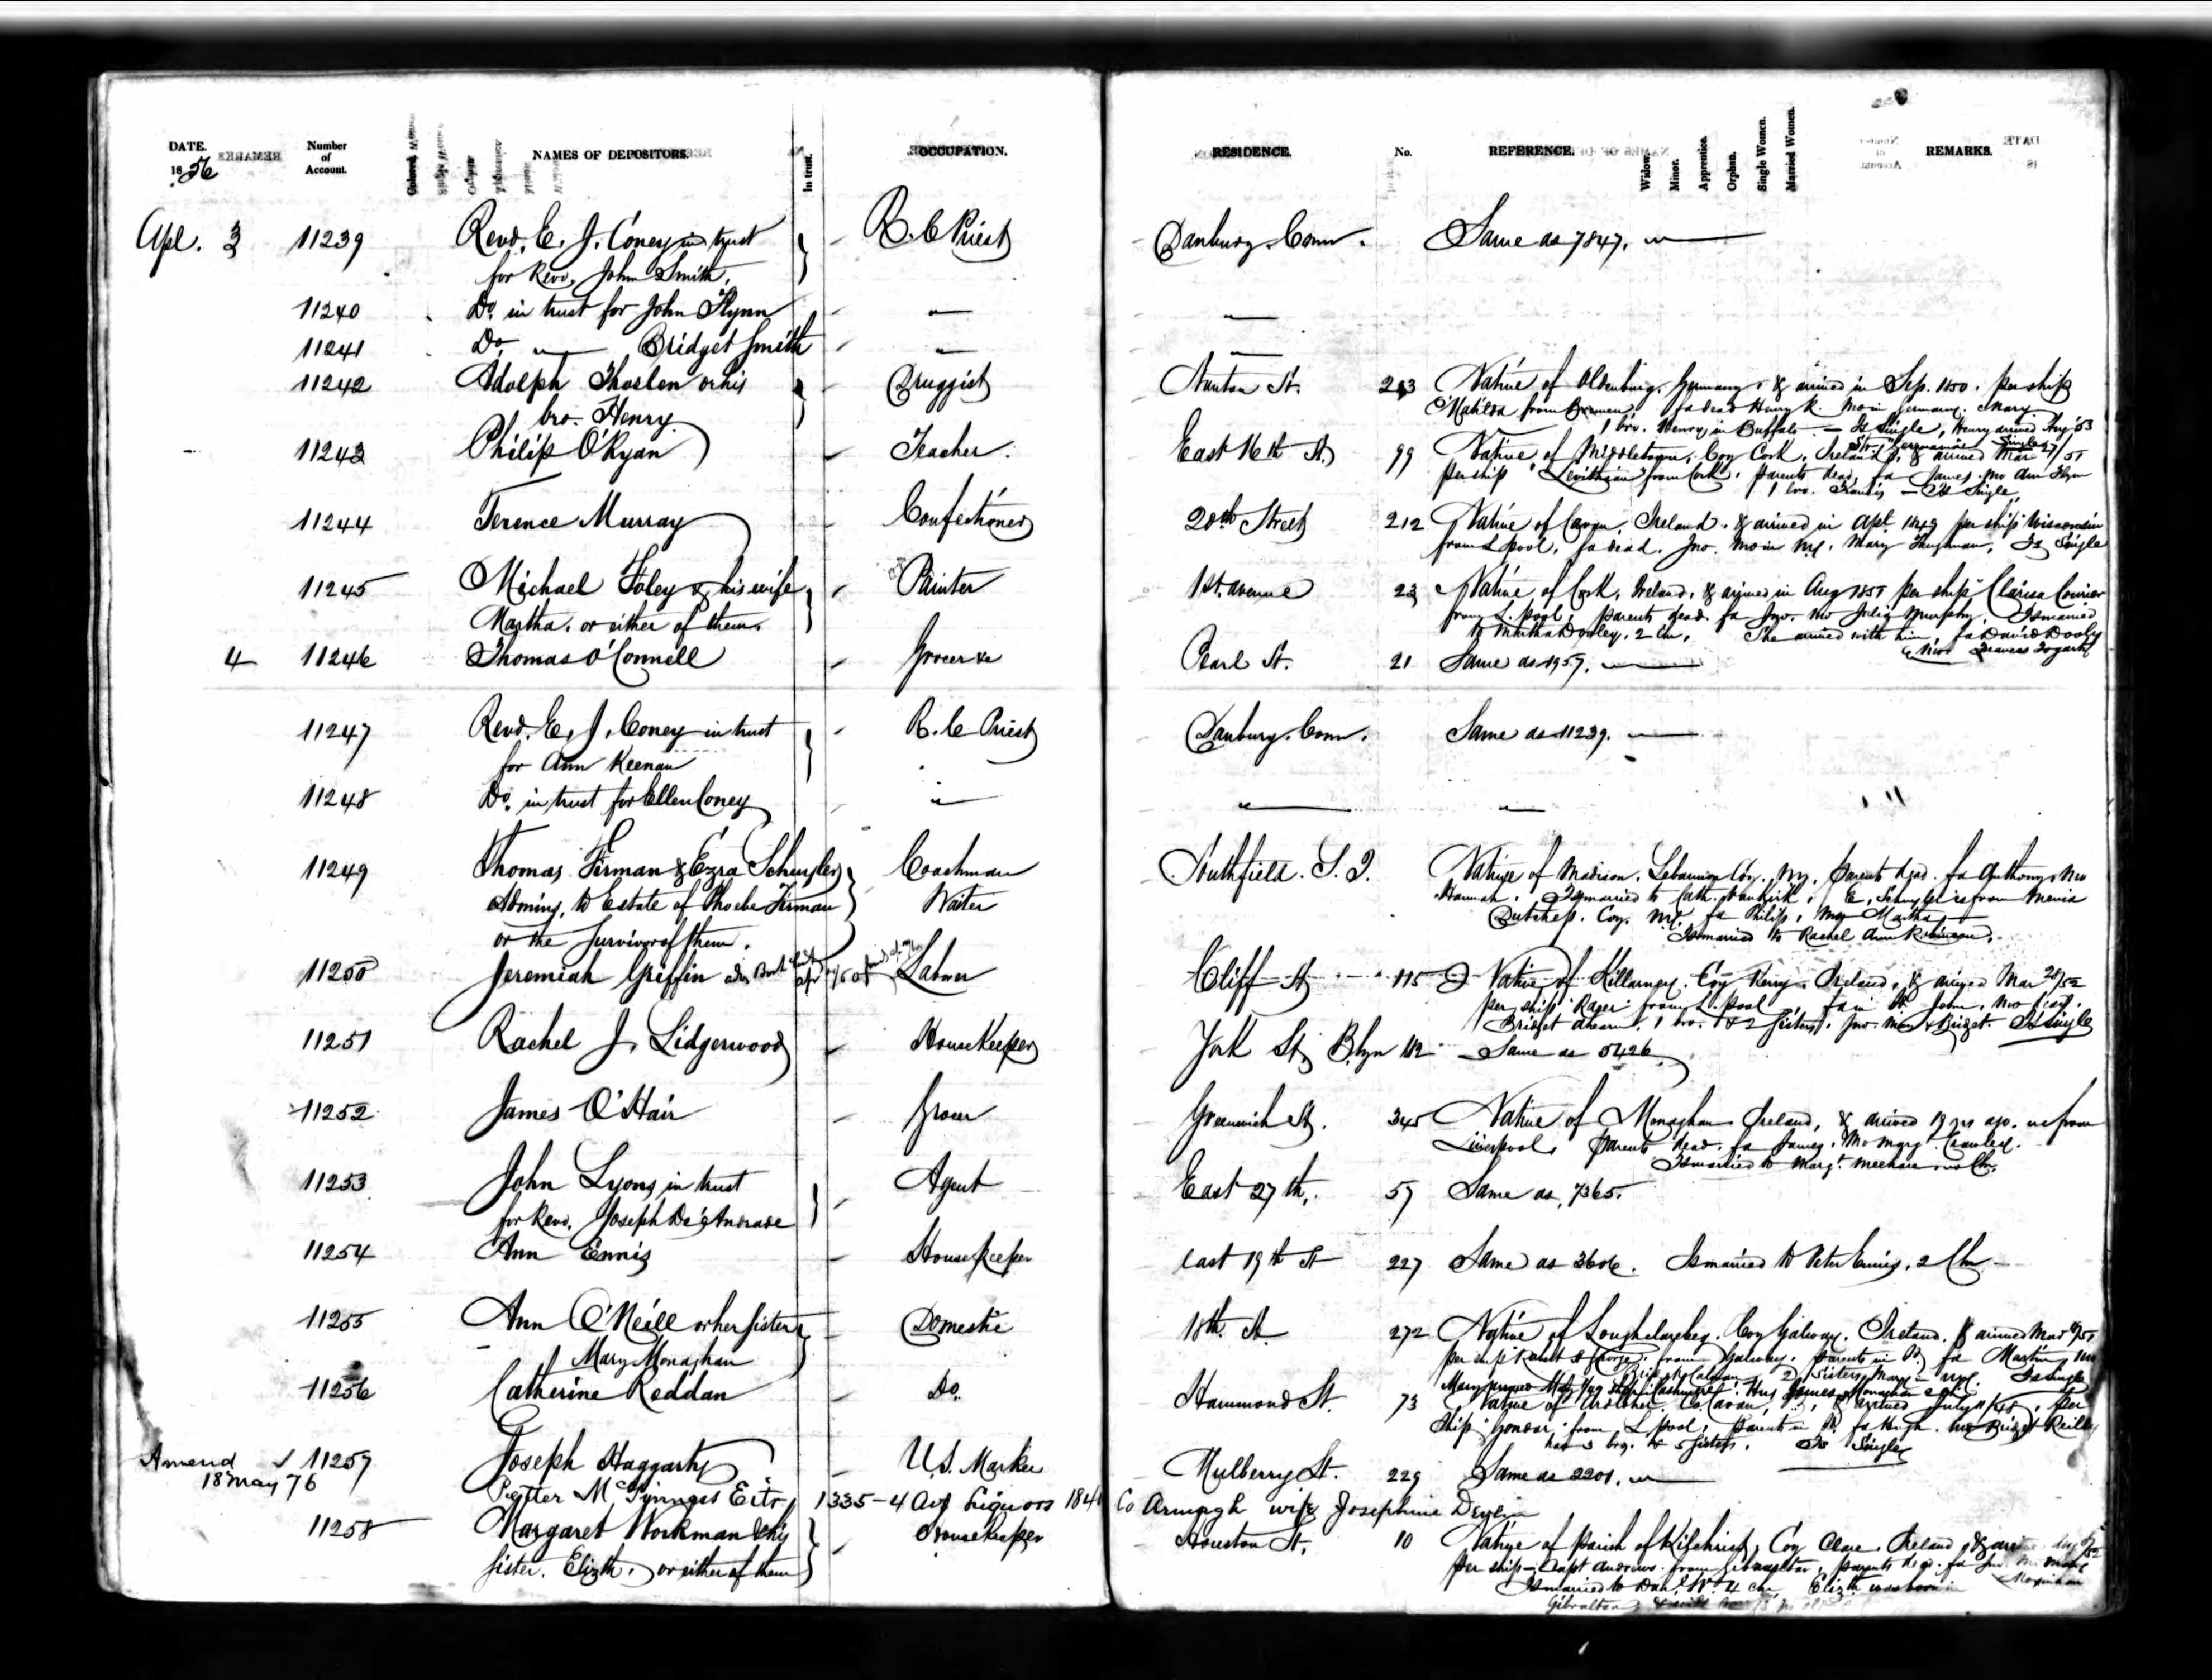 DATE. 1856
Number of Account.
NAMES OF DEPOSITORS.
In trust.
OCCUPATION.
RESIDENCE.
No.
REFERENCE.
Widow.
Minor.
Apprentice.
Orphan.
Single Women.
Married Women.
REMARKS.
Apl. 3 11239 Revd. E. J. Coney in trust R. C Priest Danbury. Conn. Same as 7847.
for Revd. John Smith,
11240 Do. in trust for John Flynn
11241 Do. Bridget Smith
11242 Adolph Thoelen or his Druggist Stanton St. 213 Native of Oldenburg, Germany, & arrived in Sep. 1850. per ship
bro. Henry Matilda from Bremen, fa dead Henry K. Mo in Germany. Mary
1 bro. Henry in Buffalo — Is Single, Henry arrived Aug 53
11243 Philip O'Ryan Teacher. East 16th St. 99 Native of Middletown, Coy Cork, Ireland, & arrived Mar 27/51
per ship "Leviathan" from Cork, parents dead, fa James. mo Ann Flyn
1 bro. Francis — Is Single,
11244 Terence Murray Confectioner 20th Street 212 Native of Cavan, Ireland. & arrived in Apl. 1849 per ship Wisconsin
from L.pool, fa dead. Jno. Mo in NY. Mary Is Single
11245 Michael Foley & his wife Painter 1st. avenue 23 Native of Cork, Ireland, & arrived in Aug 1851 per ship Clarisa Courier
Martha. or either of them. from L.pool, parents dead. fa Jno. mo Julia Murphy, Is married
to Martha Dooley, 2 Chn, She arrived with him, fa David Dooly
mo Frances Fogarty
4 11246 Thomas O'Connell Grocer &c Pearl St. 21 Same as 1957.
11247 Revd. E, J, Coney in trust R. C Priest Danbury. Conn. Same as 11239.
for Ann Keenan
11248 Do. in trust for Ellen Coney
11249 Thomas Firman & Ezra Schuyler Coachman Southfield. S. I. Native of Madison, Lebanon Coy. NY, parents dead. fa Anthony. Mo
Admins, to Estate of Phoebe Firman Waiter Hannah. Is married to Cath. E, Schuyler is from
or the Survivor of them. Dutchess. Coy. NY. fa Philip, Mo Martha
Is married to Rachel Ann Robinson.
11250 Jeremiah Griffin Labrer Cliff St 115 Native of Killarney. Coy Kerry. Ireland, & arrived Mar 28/52
per ship Roger from L.pool, fa in Id. John, mo dead.
Bridget Ahearn, 1 bro. & 2 Sisters, Is Single
11251 Rachel J. Lidgerwood HouseKeeper York St, B.lyn 112 Same as 5426
11252 James O'Hair Grocer Greenwich St. 345 Native of Monaghan Ireland, & arrived 19 yrs ago. from
Liverpool, Parents dead. fa James, Mo Margt. Crawley.
Is married to Margt. Meehan no Chn.
11253 John Lyons in trust Agent East 27th,. 57 Same as, 7365.
for Revd. Joseph De'Andrade
11254 Ann Ennis HouseKeeper East 19th St 227 Same as 3606. Is married to Peter Ennis, 2 Chn
11255 Ann O'Neill or her Sister Domestic 18th. St 272 Native of Coy Galway. Ireland. & arrived Mar
Mary Monaghan per ship from Galway. parents in Id. fa Martin, mo
2 Sisters, Mary in NY. Is single
11256 Catherine Reddan Do. Hammond St. 73 Native of Co. Cavan, & arrived July per
Ship "Gondar" from L.pool, parents in Id. fa Hugh. mo Bridget Reilly
has 3 bro. & 5 sisters. Is Single
Amend 11257 Joseph Haggarty U.S. Marker Mulberry St. 229 Same as 2201.
18 May 76 Peter McGinness 1335-4 Av Liquors 184 Co Armagh wife Josephine Devlin
11258 Margaret Workman & his HouseKeeper Houston St. 10 Native of Parish of Kilchrist, Coy Clare. Ireland,
Sister. Elizth, or either of them per ship Capt Andrews from Gibraltar, parents
Is married to Danl. W. 4 chn Elizth was born in
Gibraltar